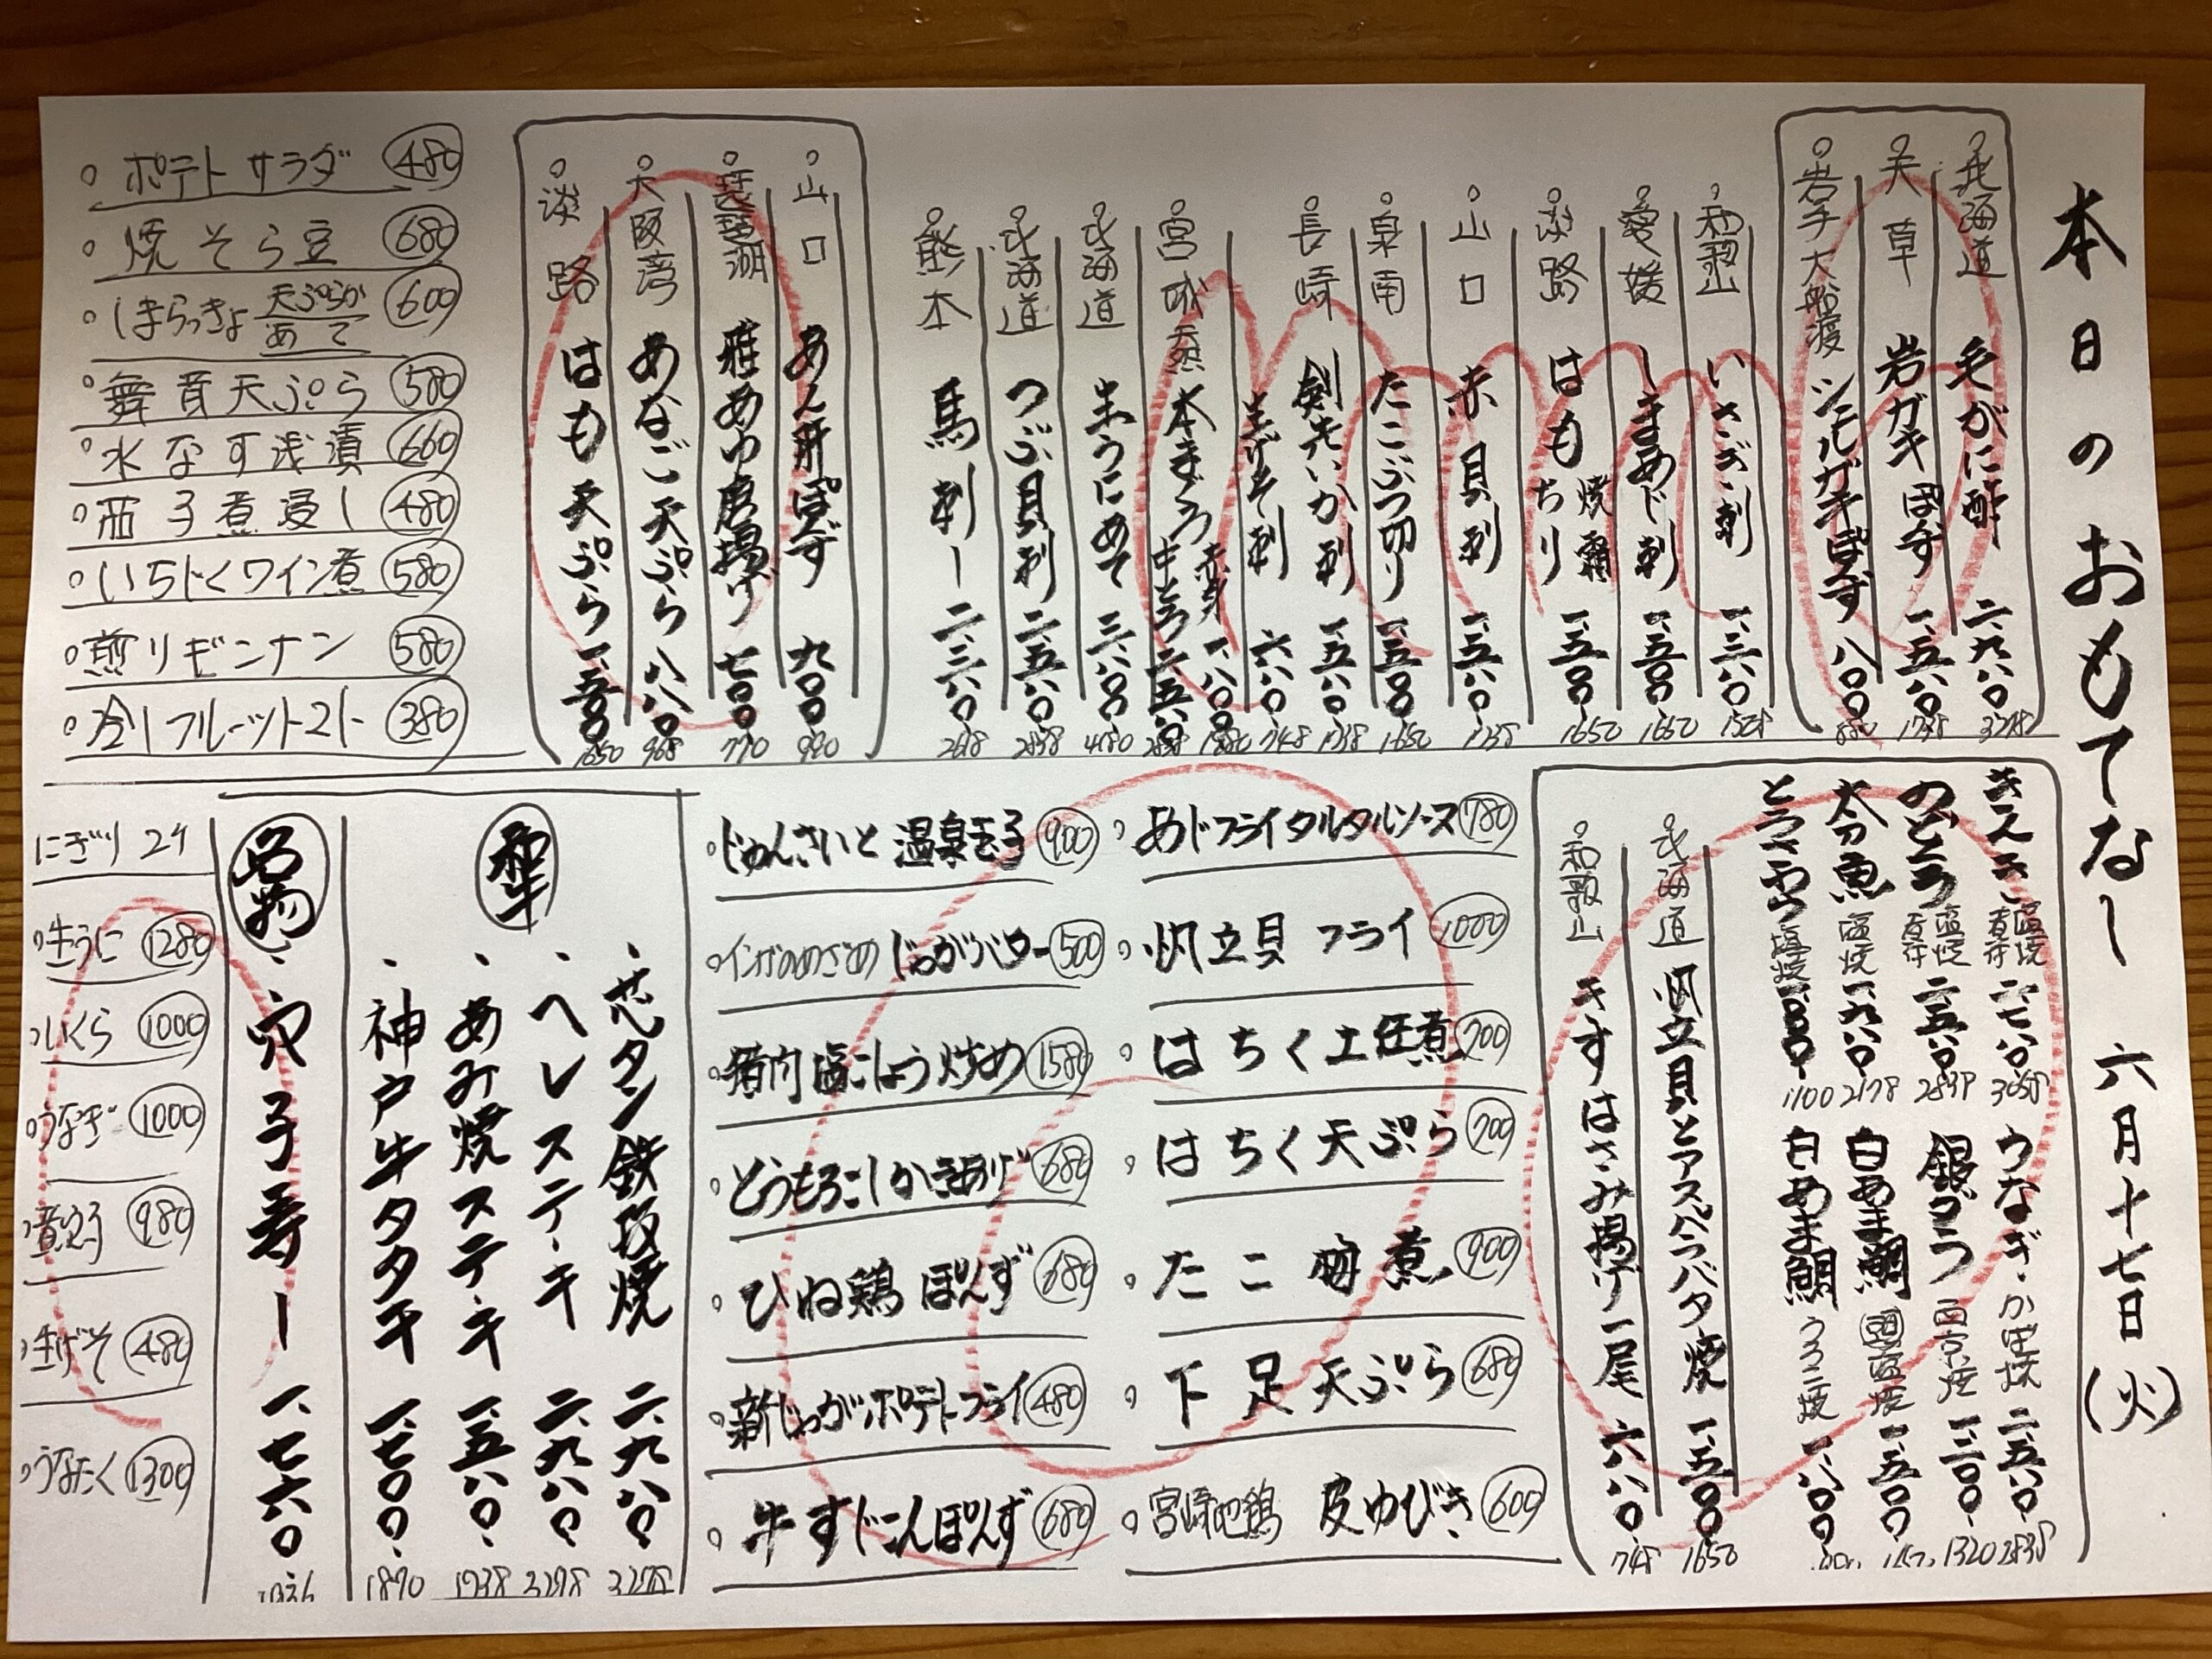 本日のおもてなし 六月十七日(火)
北海道 毛がに酢 二、九八〇 3278
天草 岩ガキぽず 一、五八〇 1738
岩手大船渡 シングルガキぽず 八〇〇 880
和歌山 いさぎ刺 一、三八〇 1518
愛媛 しまあじ刺 一、五〇〇 1650
淡路 はも 焼霜 ちり 一、五〇〇 1650
山口 赤貝刺 一、五八〇 1738
泉南 たこぶつ切り 一、五〇〇 1650
長崎 剣先いか刺 一、五八〇 1738
生げそ刺 六八〇 748
宮城 天然 本まぐろ 赤身 一、八〇〇 1980
中とろ 二、五八〇 2838
北海道 生うにあて 三、八〇〇 4180
北海道 つぶ貝刺 二、五八〇 2838
熊本 馬刺し 二、三八〇 2618
山口 あん肝ぽず 九〇〇 990
琵琶湖 稚あゆ唐揚げ 七〇〇 770
大阪湾 あなご天ぷら 八八〇 968
淡路 はも天ぷら 一、五〇〇 1650
ポテトサラダ 480
焼そら豆 680
しまらっきょ 天ぷらか あて 600
舞茸天ぷら 580
水なす浅漬 660
茄子煮浸し 480
いちじくワイン煮 580
煎りギンナン 580
冷しフルーツトマト 380
きんき 塩焼 煮付 二、七八〇 3058
のどぐろ 塩焼 煮付 二、五八〇 2838
太刀魚 塩焼 一、九八〇 2178
とうざわら 塩焼 一、〇〇〇 1100
うなぎ かば焼 二、五八〇 2838
銀ダラ 西京焼 一、二〇〇 1320
白あま鯛 頭塩焼 一、五〇〇
白あま鯛 うろこ焼 一、八〇〇
北海道 帆立貝とアスパラバタ焼 一、五〇〇 1650
和歌山 きすはさみ揚げ一尾 六八〇 748
あじフライタルタルソース 780
帆立貝フライ 1000
はちく土佐煮 700
はちく天ぷら 700
たこ 煮 900
下足天ぷら 680
宮崎地鶏 皮ゆびき 600
じゅんさいと温泉玉子 900
インカのめざめ じゃがバター 500
猪肉塩こしょう炒め 1580
とうもろこしかきあげ 680
ひね鶏ぽんず 680
新じゃがポテトフライ 480
牛すじこんぽんず 680
和牛
芯タン鉄板焼 二、九八〇 3278
ヘレステーキ 二、九八〇 3278
あみ焼ステーキ 一、五八〇 1738
神戸牛タタキ 一、七〇〇 1870
名物
穴子寿し 一、七六〇
にぎり 2ケ
生うに 1280
いくら 1000
うなぎ 1000
煮穴子 980
生げそ 480
うなたく 1300